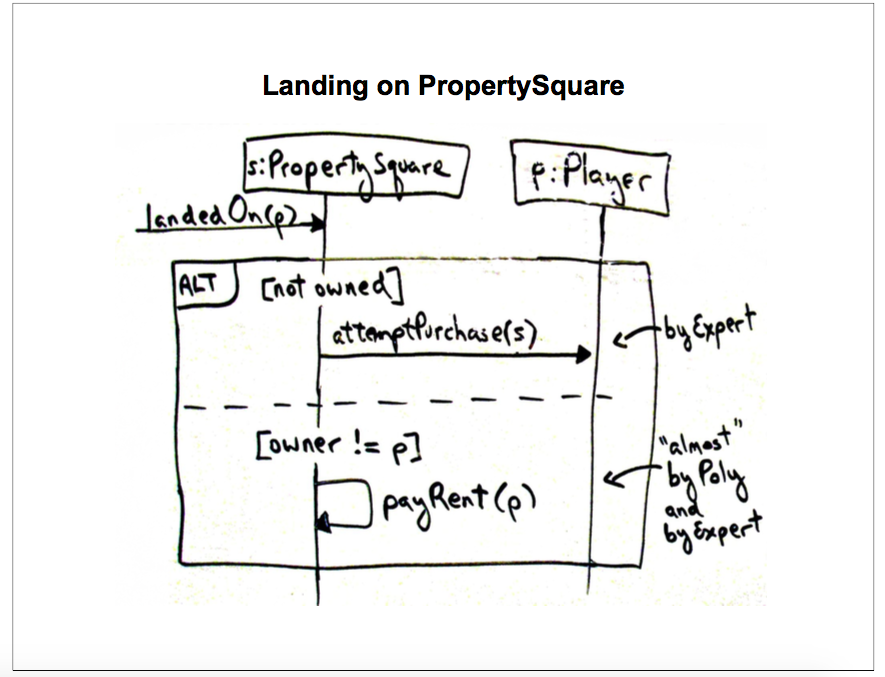 Landing on PropertySquare
s:PropertySquare
p:Player
landedOn(p)
ALT
[not owned]
attemptPurchase(s)
by Expert
[owner != p]
"almost"
by Poly
and
by Expert
payRent(p)